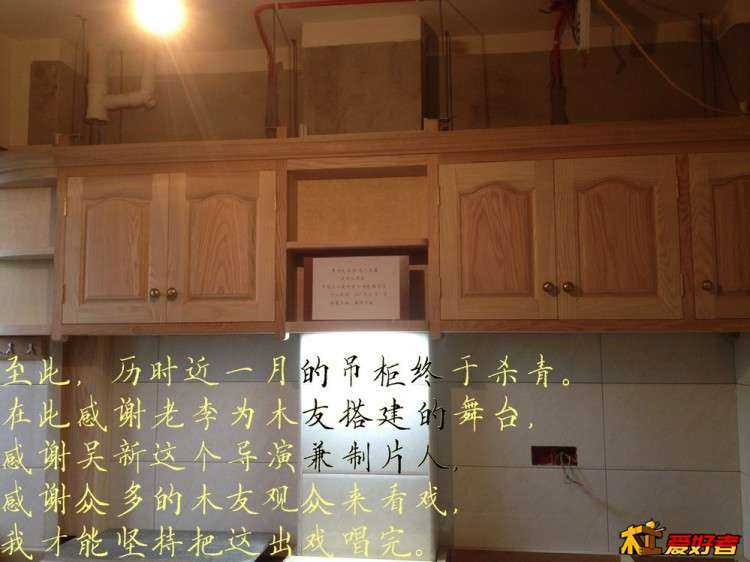 至此，历时近一月的吊柜终于杀青。
在此感谢老李为木友搭建的舞台，
感谢吴新这个导演兼制片人，
感谢众多的木友观众来看戏，
我才能坚持把这出戏唱完。
木工爱好者